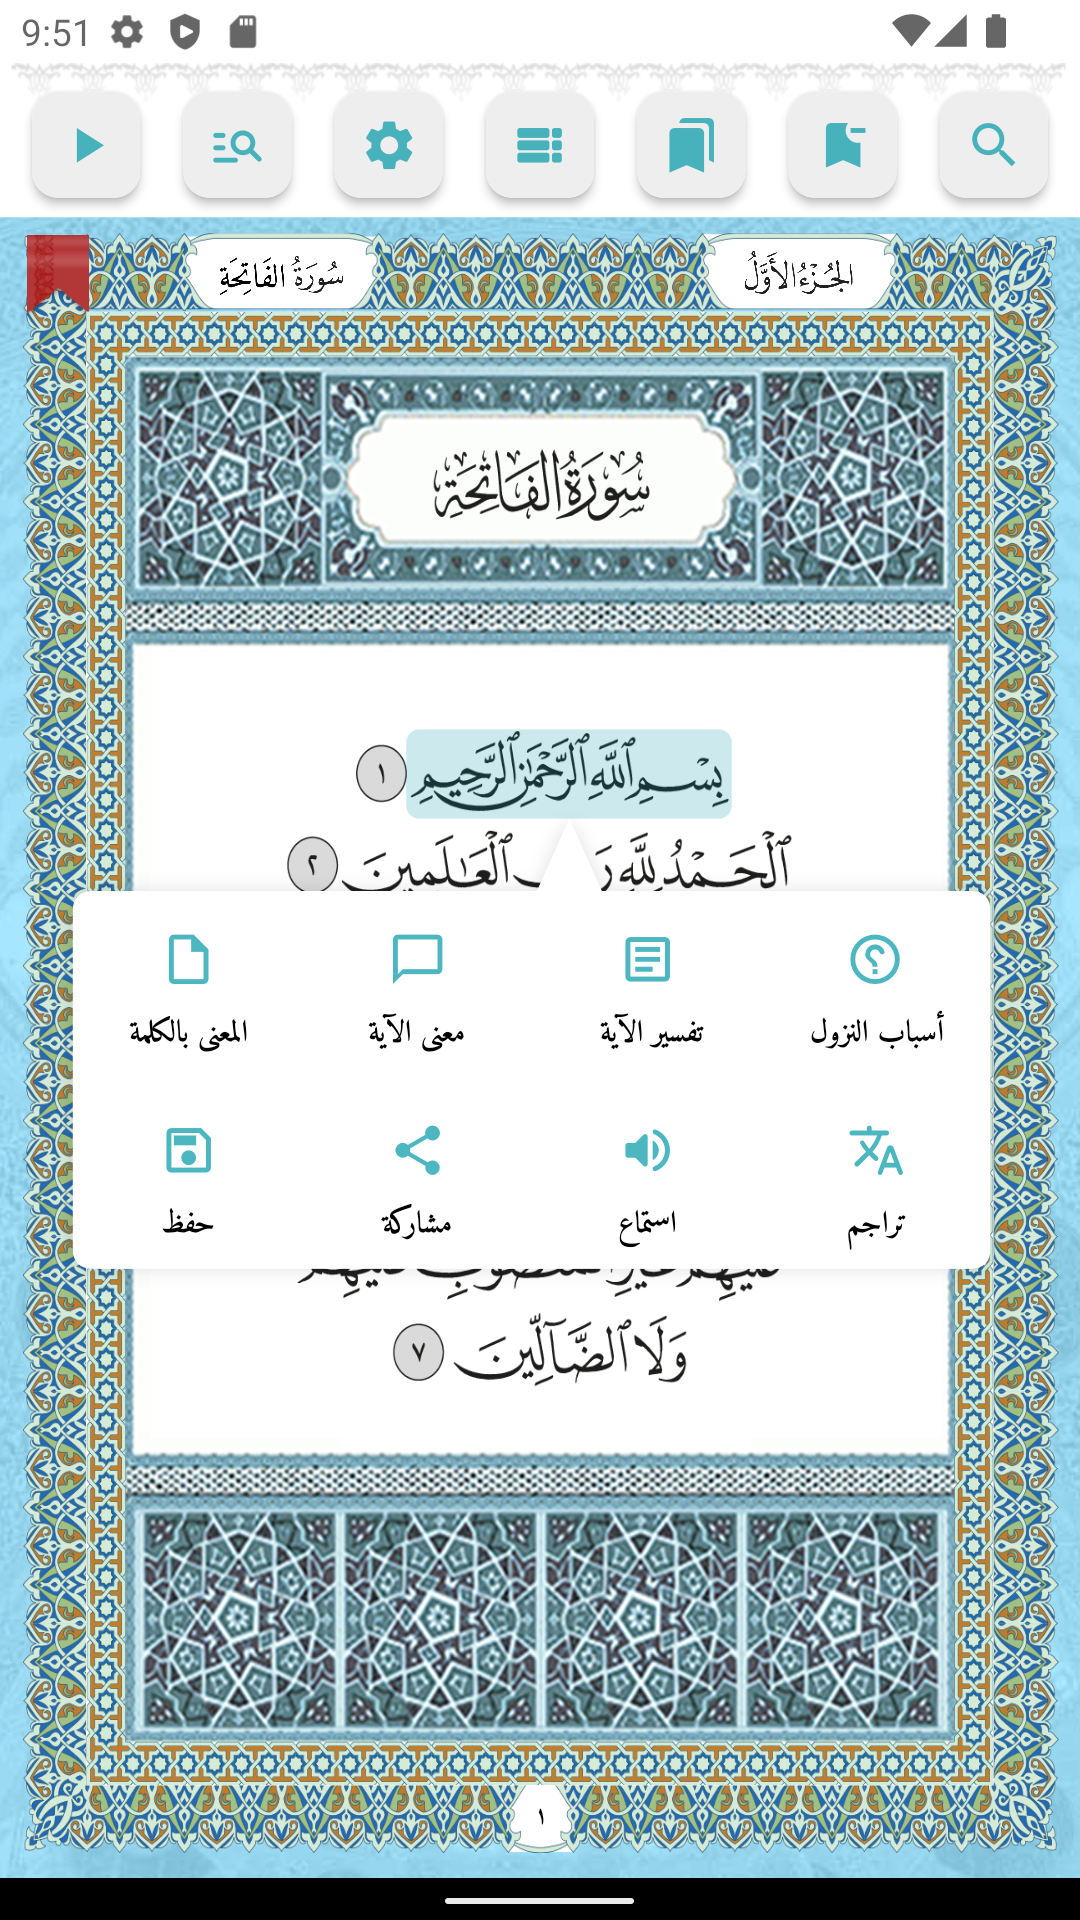 9:51
الجُزْءُ الأَوَّلُ
سُورَةُ الفَاتِحَةِ
سُورَةُ الفَاتِحَةِ
بِسْمِ ٱللَّهِ ٱلرَّحْمَٰنِ ٱلرَّحِيمِ ١
ٱلْحَمْدُ لِلَّهِ ٱلْعَٰلَمِينَ ٢
أسباب النزول
تفسير الآية
معنى الآية
المعنى بالكلمة
تراجم
استماع
مشاركة
حفظ
وَلَا ٱلضَّآلِّينَ ٧
١